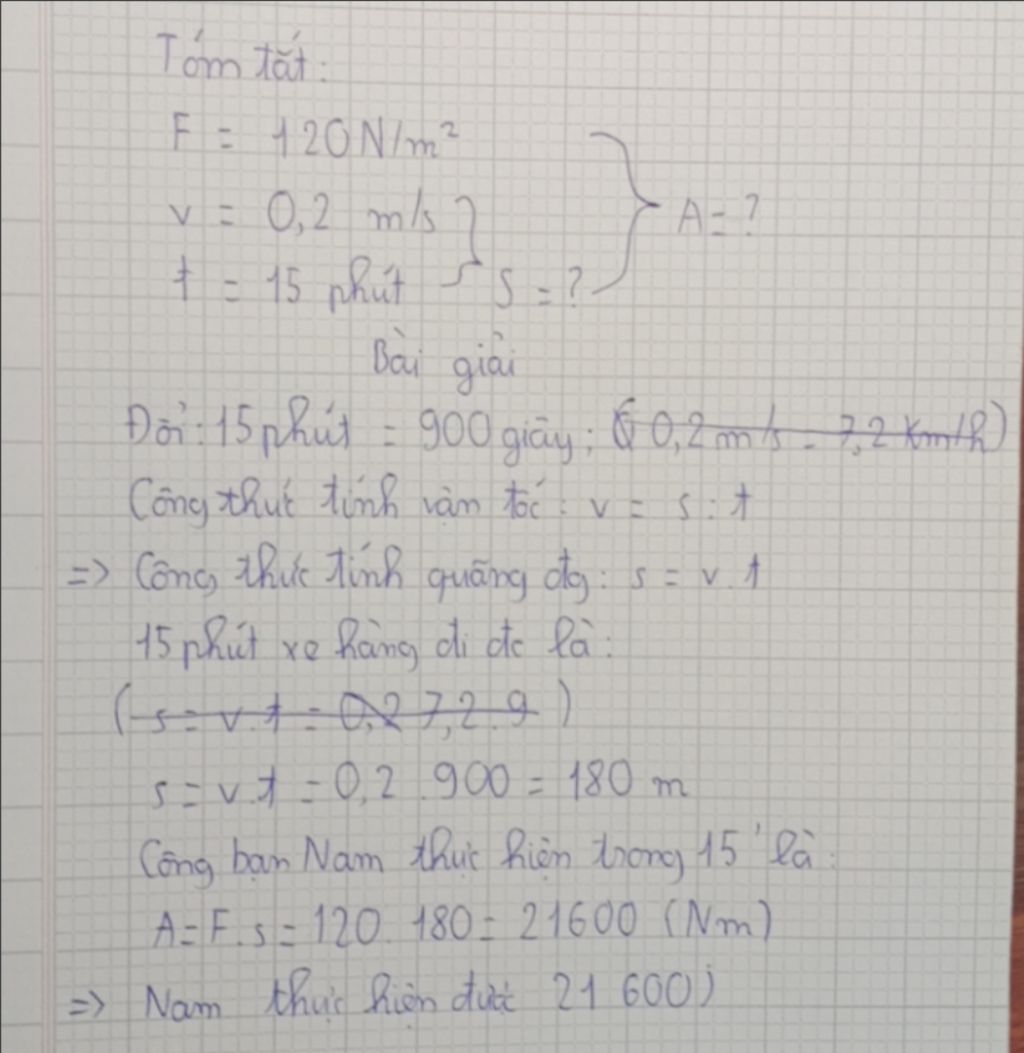 Tóm tắt:
F = 120N/m²
v = 0,2 m/s
A = ?
t = 15 phút
s = ?
Bài giải
Đổi: 15 phút = 900 giây; (0,2 m/s = 7,2 km/h)
Công thức tính vận tốc: v = s : t
=> Công thức tính quãng đg: s = v.t
15 phút xe hàng đi đc là:
(s = v.t = 0,2 7,2.9)
s = v.t = 0,2.900 = 180 m
Công bạn Nam thực hiện trong 15' là:
A = F.s = 120.180 = 21600 (Nm)
=> Nam thực hiện được 21 600j